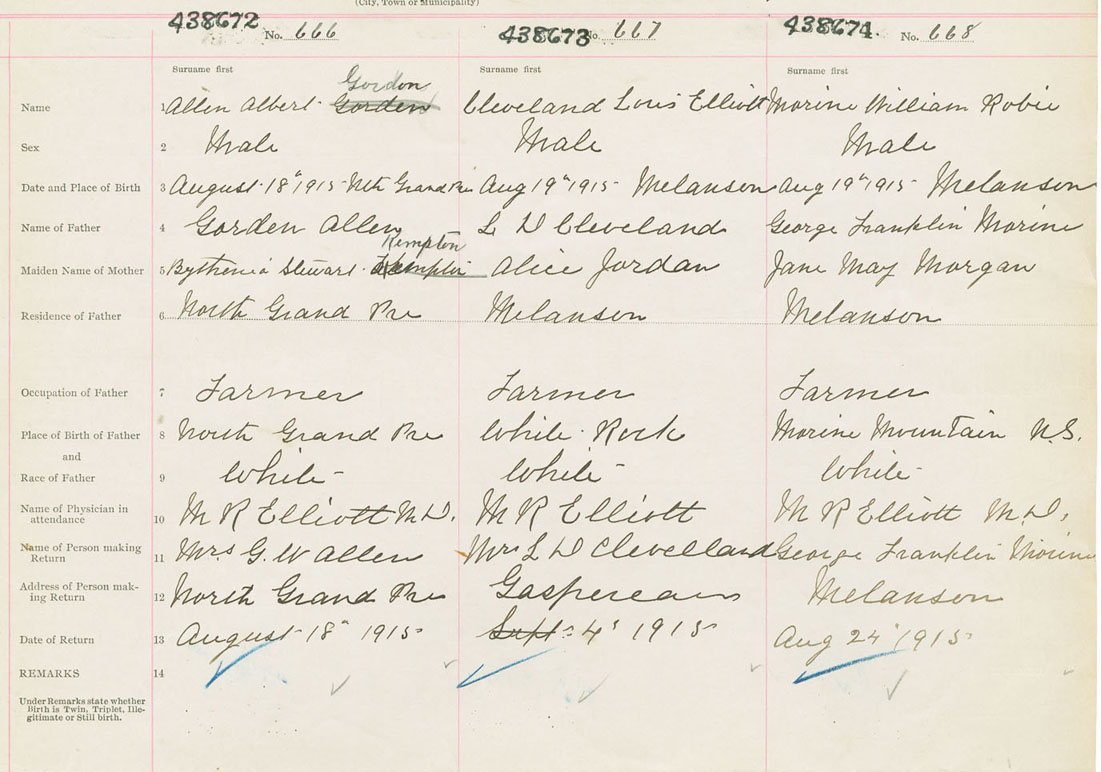 (City, Town or Municipality)
438672 No. 666 438673 No. 667 438674 No. 668
Surname first Surname first Surname first
Gordon
Name 1 Allen Albert Gorden Cleveland Loris Elliott Morine William Robie
Sex 2 Male Male Male
Date and Place of Birth 3 August 18" 1915 Nth Grand Pre Aug 19th 1915 Melanson Aug 19th 1915 Melanson
Name of Father 4 Gorden Allen L D Cleveland George Franklin Morine
Kempton
Maiden Name of Mother 5 Bythenia Stewart Alice Jordan Jane May Morgan
Residence of Father 6 North Grand Pre Melanson Melanson
Occupation of Father 7 Farmer Farmer Farmer
Place of Birth of Father 8 North Grand Pre White Rock Morine Mountain N.S.
and
Race of Father 9 White White White
Name of Physician in
attendance 10 M R Elliott M.D. M R Elliott M R Elliott M.D.
Name of Person making
Return 11 Mrs G. W Allen Mrs L D Clevelland George Franklin Morine
Address of Person mak-
ing Return 12 North Grand Pre Gaspereau Melanson
Date of Return 13 August 18" 1915 Sept 4" 1915 Aug 24" 1915
REMARKS 14
Under Remarks state whether
Birth is Twin, Triplet, Ille-
gitimate or Still birth.